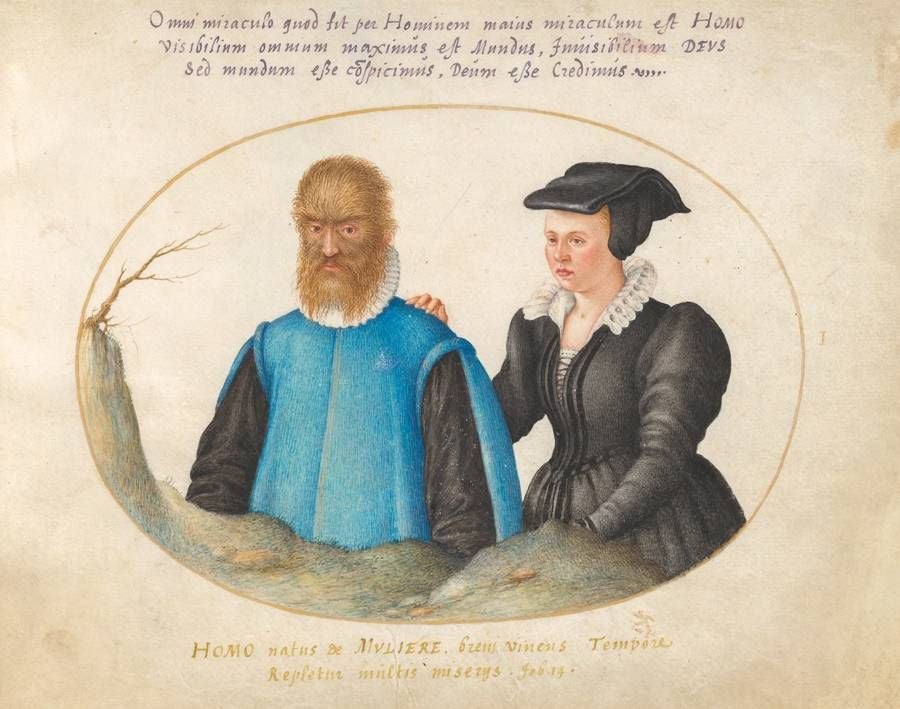 Omni miraculo quod fit per Hominem maius miraculum est HOMO
Visibilium omnium maximus est Mundus, Invisibilium DEVS
Sed mundum esse cōspicimus, Deum esse Credimus
I
HOMO natus de MVLIERE, brevi vivens Tempore
Repletur multis miserys. Job. 14.